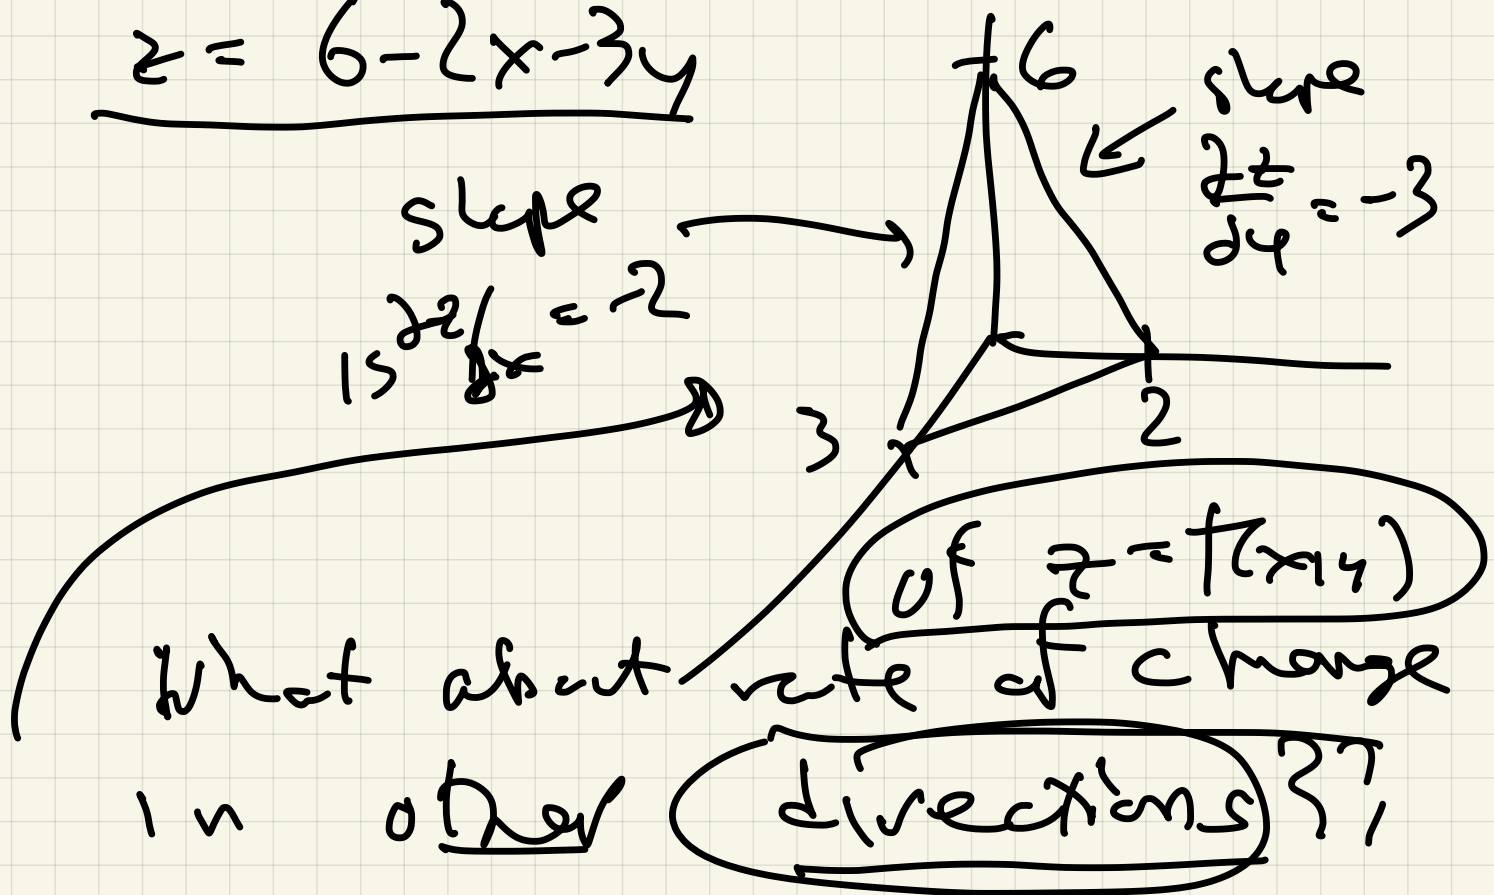 z = 6-2x-3y
6
slope
∂z/∂y = -3
slope
is ∂z/∂x = -2
3
2
of z = f(x,y)
What about rate of change
in other directions??